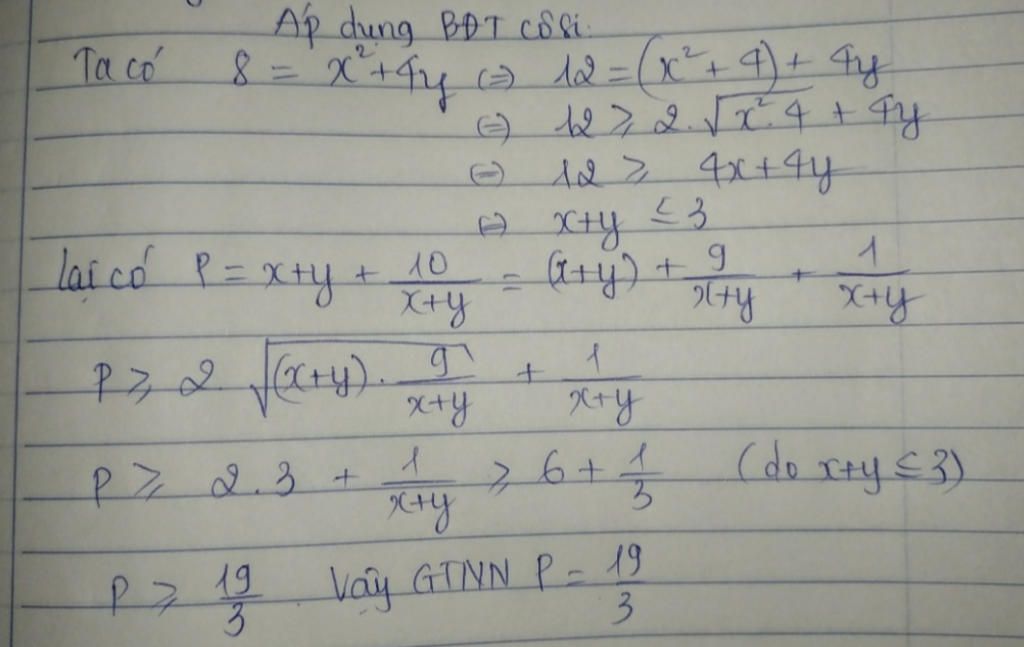 Áp dụng BĐT côsi.
Ta có 8 = x² + 4y ⇔ 12 = (x² + 4) + 4y
⇔ 12 ⩾ 2.√(x².4) + 4y
⇔ 12 ⩾ 4x+4y
⇔ x+y ≤ 3
lại có P = x+y + 10/(x+y) = (x+y) + 9/(x+y) + 1/(x+y)
P ⩾ 2. √((x+y) . 9/(x+y)) + 1/(x+y)
P ⩾ 2.3 + 1/(x+y) ⩾ 6 + 1/3 (do x+y ≤ 3)
P ⩾ 19/3 . Vậy GTNN P = 19/3